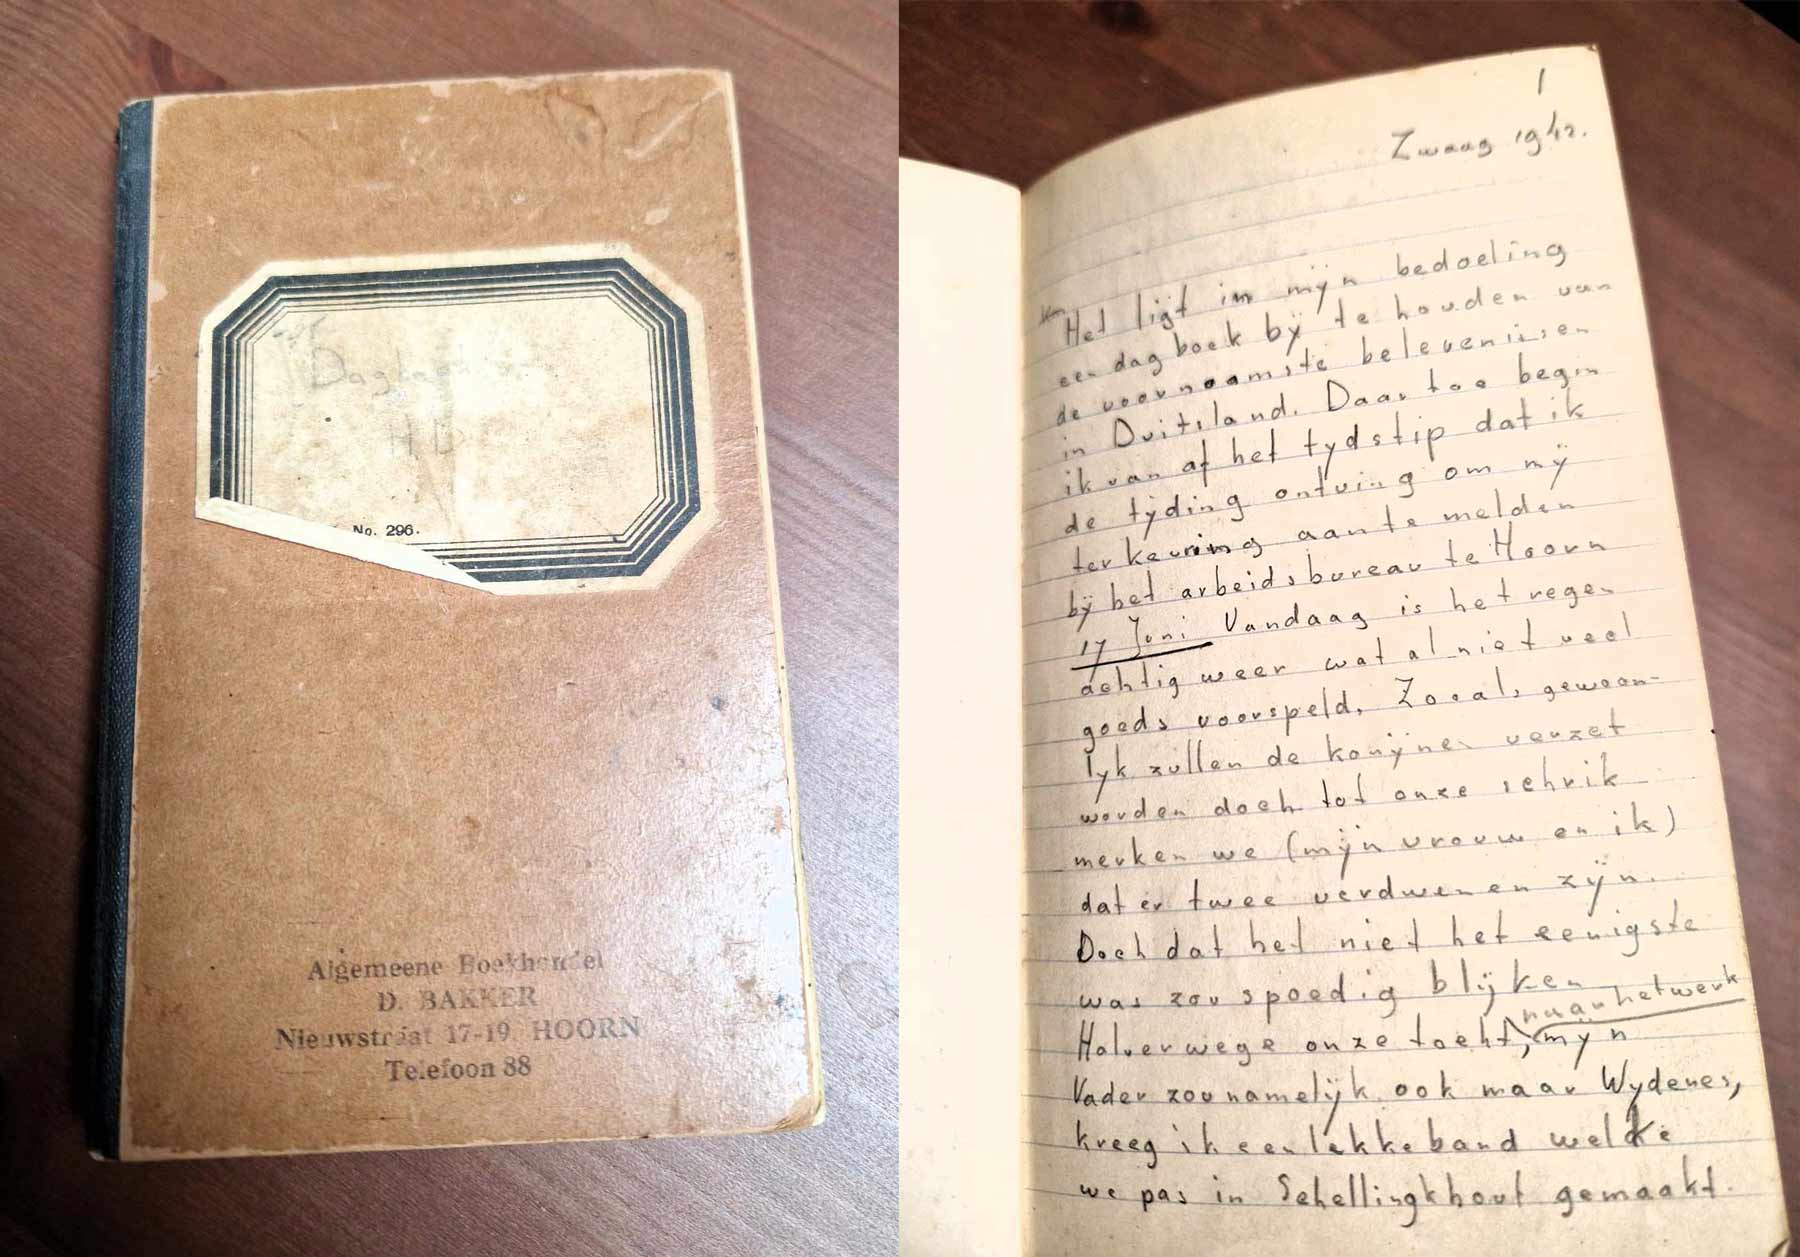 Dagboek
H D
No. 296.
Algemeene Boekhandel
D. BAKKER
Nieuwstraat 17-19 HOORN
Telefoon 88
1
Zwaag 1942.
Het ligt in mijn bedoeling
een dagboek bij te houden van
de voornaamste belevenissen
in Duitsland. Daartoe begin
ik van af het tydstip dat ik
de tijding ontving om mij
ter keuring aan te melden
bij het arbeidsbureau te Hoorn
17 Juni Vandaag is het regen
achtig weer wat al niet veel
goeds voorspeld. Zooals gewoon-
lyk zullen de konijnen verzet
worden doch tot onze schrik
merken we (mijn vrouw en ik)
dat er twee verdwenen zijn.
Doch dat het niet het eenigste
was zou spoedig blijken
naar het werk
Halverwege onze tocht, mijn
Vader zou namelijk ook maar Wydenes,
kreeg ik een lekke band welke
we pas in Schellingkhout gemaakt.